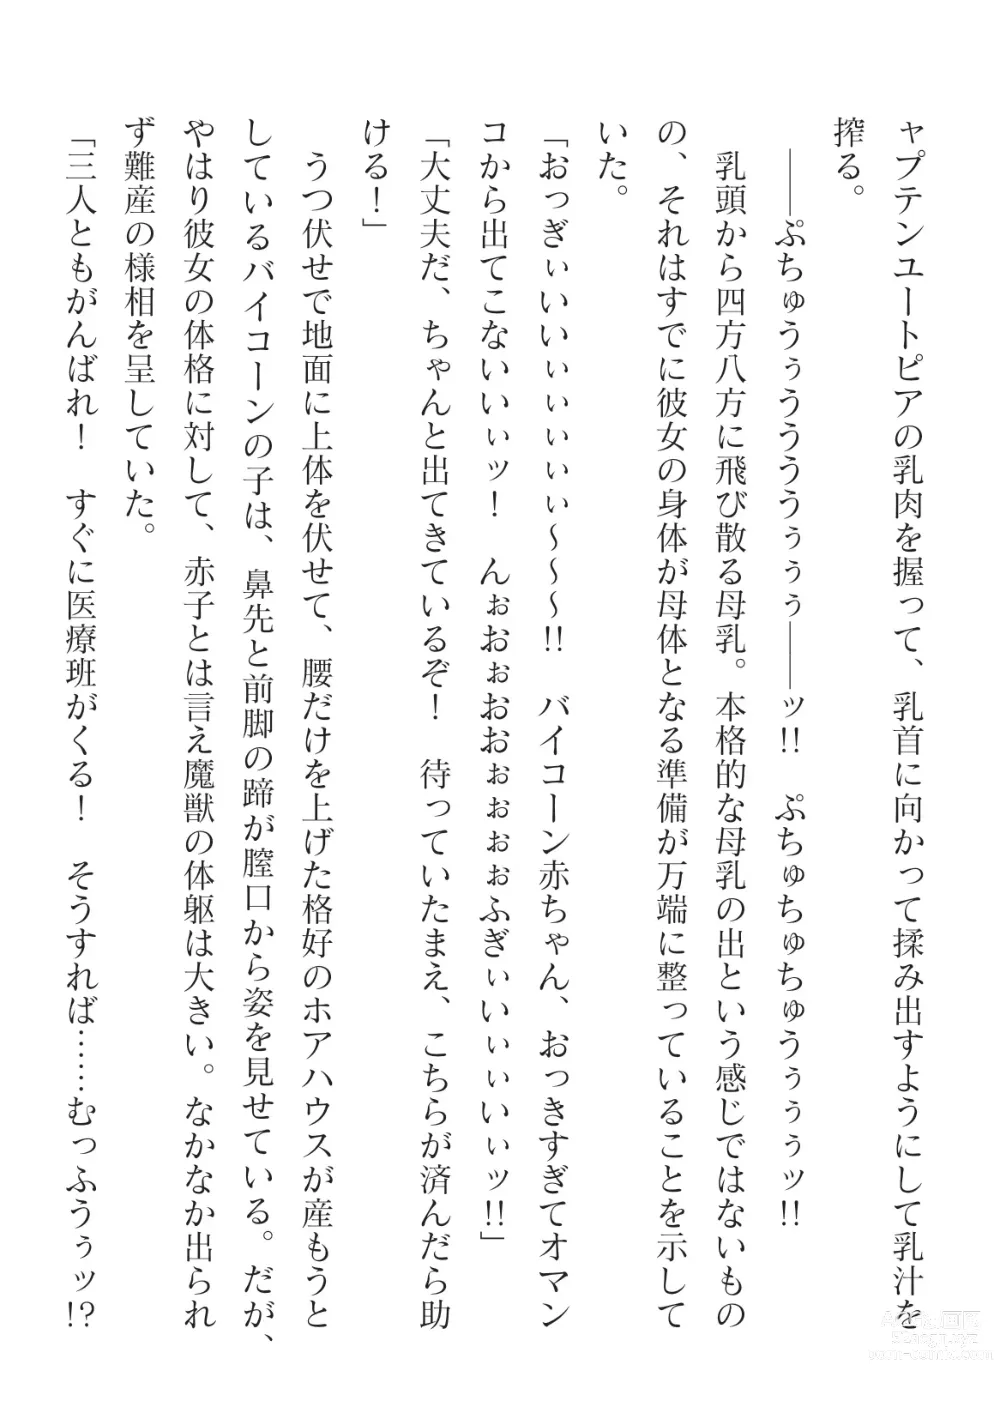 ャプテンユートピアの乳肉を握って、乳首に向かって揉み出すようにして乳汁を
搾る。
――ぷちゅうぅうううぅぅぅ――ッ!! ぷちゅちゅちゅうぅぅぅッ!!
乳頭から四方八方に飛び散る母乳。本格的な母乳の出という感じではないもの
の、それはすでに彼女の身体が母体となる準備が万端に整っていることを示して
いた。
「おっぎぃいいぃぃぃぃぃ～～～!! バイコーン赤ちゃん、おっきすぎてオマン
コから出てこないいぃッ! んぉおぉおおぉぉぉぉふぎぃいぃぃいぃッ!!」
「大丈夫だ、ちゃんと出てきているぞ! 待っていたまえ、こちらが済んだら助
ける!」
うつ伏せで地面に上体を伏せて、腰だけを上げた格好のホアハウスが産もうと
しているバイコーンの子は、鼻先と前脚の蹄が膣口から姿を見せている。だが、
やはり彼女の体格に対して、赤子とは言え魔獣の体躯は大きい。なかなか出られ
ず難産の様相を呈していた。
「三人ともがんばれ! すぐに医療班がくる! そうすれば……むっふうぅッ!?